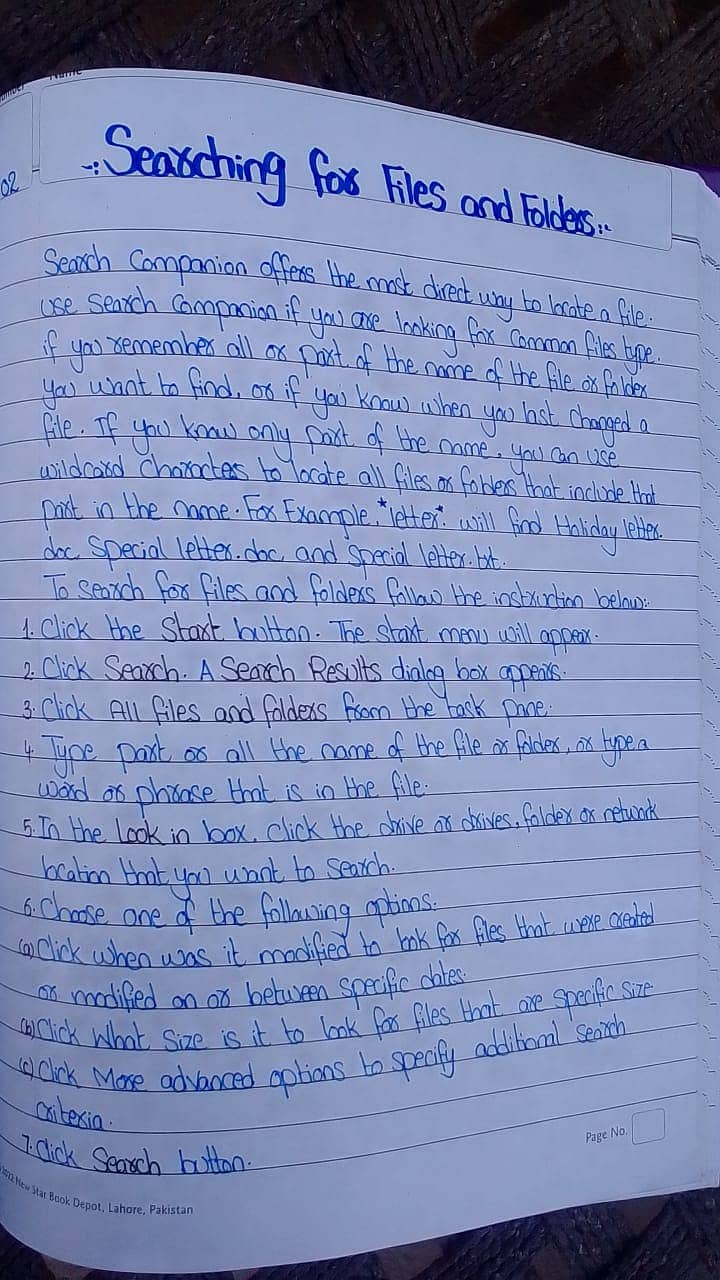 Name
02
-:Searching for Files and Folders:-
Search Companion offers the most direct way to locate a file.
use Search Companion if you are looking for Common files type.
if you remember all or part of the name of the file or folder
you want to find, or if you know when you last changed a
file. If you know only part of the name, you can use
wildcard characters to locate all files or folders that include that
part in the name. For Example, *letter*. will find Holiday letter.
doc Special letter.doc, and Special letter.txt.
To search for files and folders follow the instruction below:-
1. Click the Start button. The start menu will appear.
2. Click Search. A Search Results dialog box appears.
3. Click All files and folders from the task pane.
4. Type part or all the name of the file or folder, or type a
word or phrase that is in the file.
5. In the Look in box, click the drive or drives, folder or network
location that you want to search.
6. Choose one of the following options.
(a) Click when was it modified to look for files that were created
or modified on or between specific dates.
(b) Click What Size is it to look for files that are specific size
(c) Click More advanced options to specify additional search
criteria.
7. Click Search button.
Page No.
2022 New Star Book Depot, Lahore, Pakistan